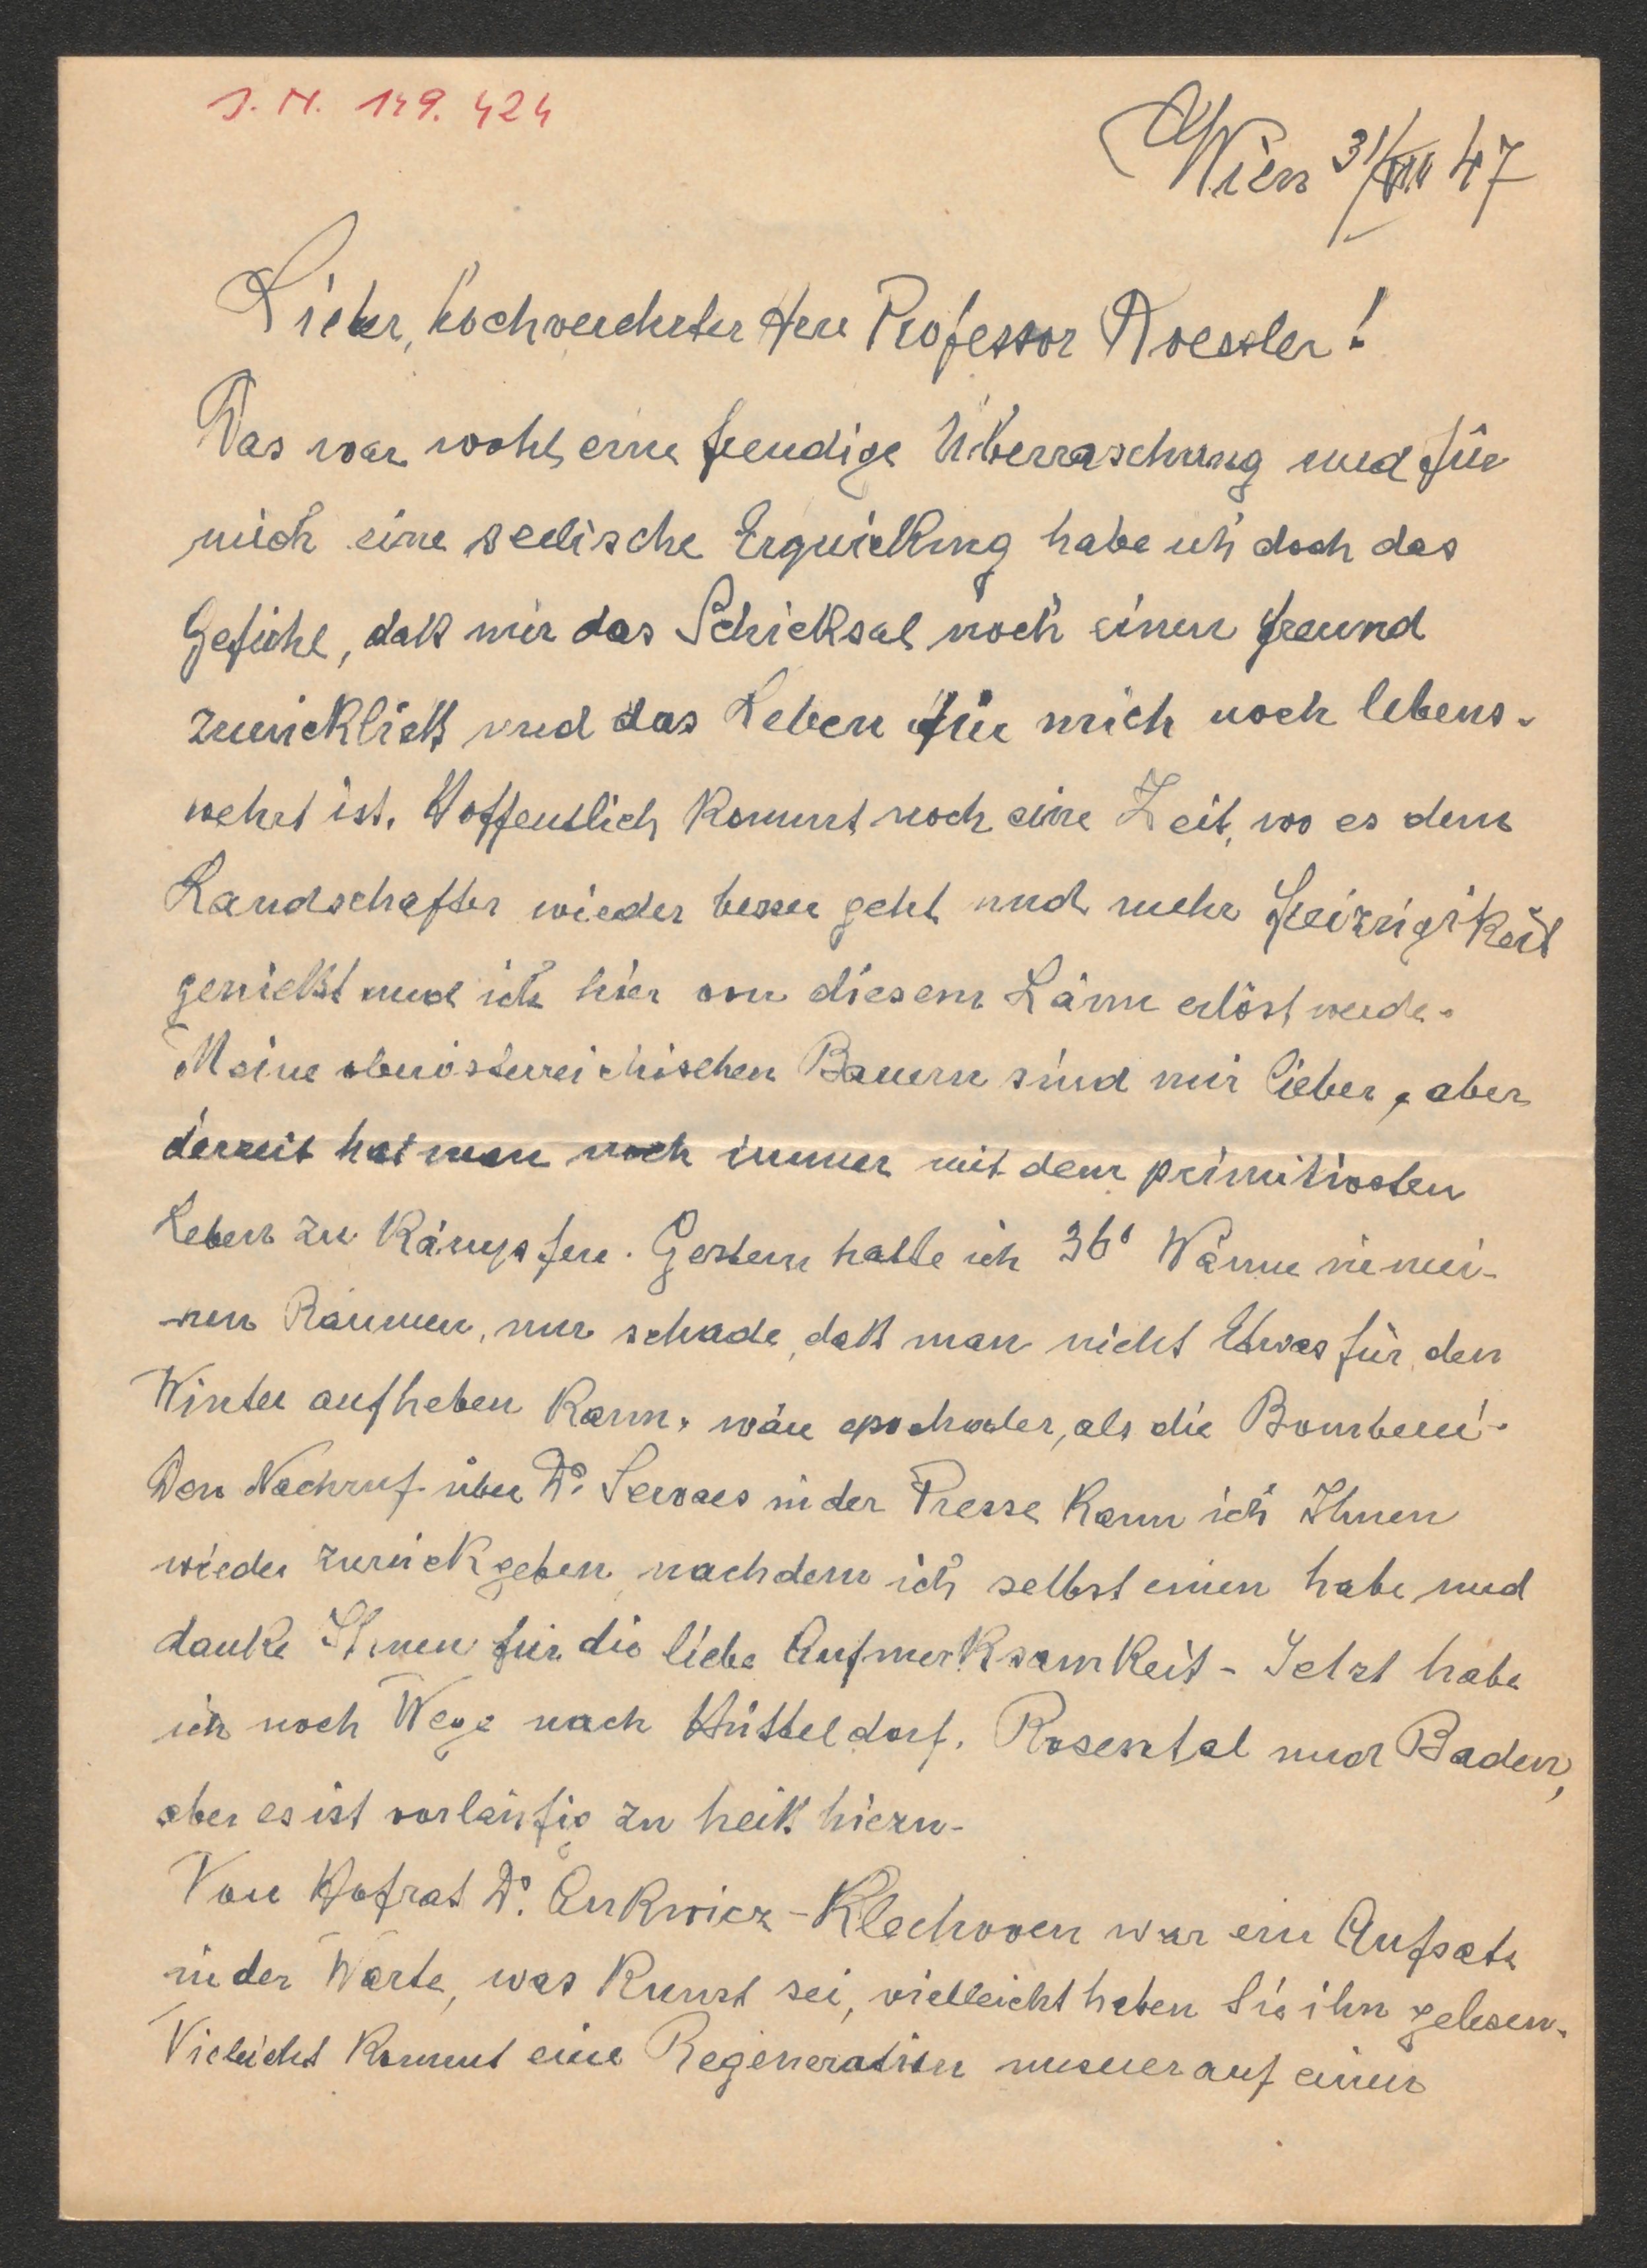 J. N. 149. 424
Wien 31/VIII 47
Lieber, hochverehrter Herr Professor Roessler!
Das war wohl eine freudige Überraschung und für
mich eine seelische Erquickung habe ich doch das
Gefühl, daß mir das Schicksal noch einen Freund
zurückließ und das Leben für mich noch lebens-
wehrt ist. Hoffentlich kommt noch eine Zeit, wo es dem
Landschafter wieder besser geht und mehr Freizügikeit
genießt und ich hier von diesem Lärm erlöst werde.
Meine oberösterreichischen Bauern sind mir lieber, aber
derzeit hat man noch immer mit dem primitivsten
Leben zu kämpfen. Gestern hatte ich 36° Wärme in mei-
nen Räumen, nur schade, daß man nicht Etwas für den
Winter aufheben kann, wäre epochaler, als die Bomberei.
Den Nachruf über Dr. Servaes in der Presse kann ich Ihnen
wieder zurückgeben, nachdem ich selbst einen habe und
danke Ihnen für die liebe Aufmerksamkeit - Jetzt habe
ich noch Wege nach Hütteldorf, Rosental und Baden,
aber es ist vorläufig zu heiß hiezu.
Von Hofrat Dr. Ankwicz-Kleehoven war ein Aufsatz
in der Warte, was Kunst sei, vielleicht haben Sie ihn gelesen.
Vieleicht kommt eine Regeneration unserer auf einen